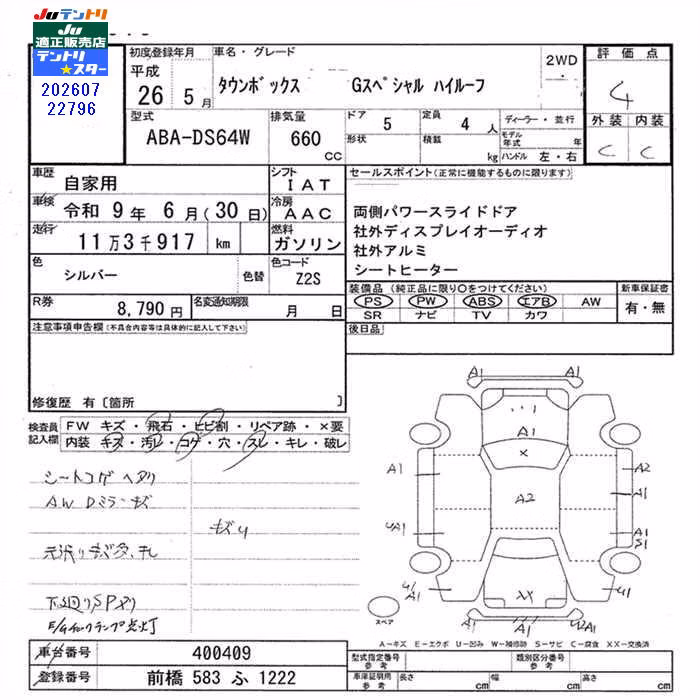 JUテントリ
JU
適正販売店
テントリ
★スター
202607
22796
初度登録年月
平成
26 5月
車名・グレード
タウンボックス Gスペシャル ハイルーフ
2WD
評価点
4
外装 内装
C C
型式
ABA-DS64W
排気量
660 CC
ドア 5
形状
定員 4 人
積載 kg
ディーラー・並行
モデル年式 年
ハンドル 左・右
車歴 自家用
シフト IAT
車検 令和 9年 6月(30日)
冷房 AAC
走行 11万3千917 km
燃料 ガソリン
色 シルバー 色替
色コード Z2S
R券 8,790円
名変通知期限 月 日
セールスポイント(正常に機能するものに限ります)
両側パワースライドドア
社外ディスプレイオーディオ
社外アルミ
シートヒーター
装備品(純正品に限り○をつけてください)
PS PW ABS エアB AW
SR ナビ TV カワ
新車保証書
有・無
後日品
注意事項申告欄(不具合内容等は具体的に記入して下さい)
修復歴 有〔箇所 〕
検査員記入欄
FW キズ・飛石・ヒビ割・リペア跡・×要
内装 キズ・汚レ・コゲ・穴・スレ・キレ・破レ
シートコゲ ヘタリ
AW Dミラーキズ
キズU
下廻りSPメリ
E/Gチェックランプ点灯
A1 A1
A1
×
A2
A1 A2
A1
UA1 A1
S1
U1
A1 A1
XX
A1 A1
スペア
A-キズ E-エクボ U-凹み W-補修跡 S-サビ C-腐食 XX-交換済
車台番号 400409
登録番号 前橋 583 ふ 1222
型式指定番号 参考
類別区分番号 参考
車庫証明用 参考
長さ cm
幅 cm
高さ cm